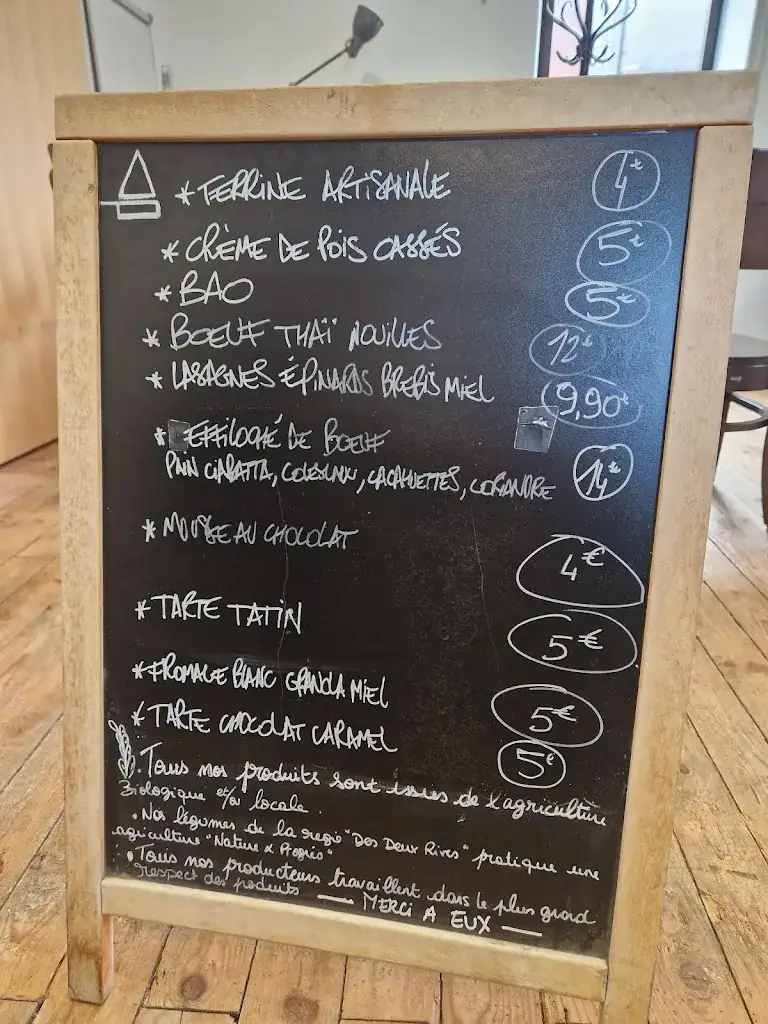 * TERRINE ARTISANALE 4€
* CRÈME DE POIS CASSÉS 5€
* BAO 5€
* BOEUF THAÏ NOUILLES 12€
* LASAGNES ÉPINARDS BREBIS MIEL 9,90€
* EFFILOCHÉ DE BOEUF
PAIN CIABATTA, COLESLAW, CACAHUETTES, CORIANDRE 14€
* MOUSSE AU CHOCOLAT 4€
* TARTE TATIN 5€
* FROMAGE BLANC GRANOLA MIEL 5€
* TARTE CHOCOLAT CARAMEL 5€
. Tous nos produits sont issues de l'agriculture
Biologique et/ou locale.
. Nos légumes de la regie "Des Deux Rives" pratique une
agriculture "Nature & Progrès"
. Tous nos producteurs travaillent dans le plus grand
respect des produits — MERCI A EUX —